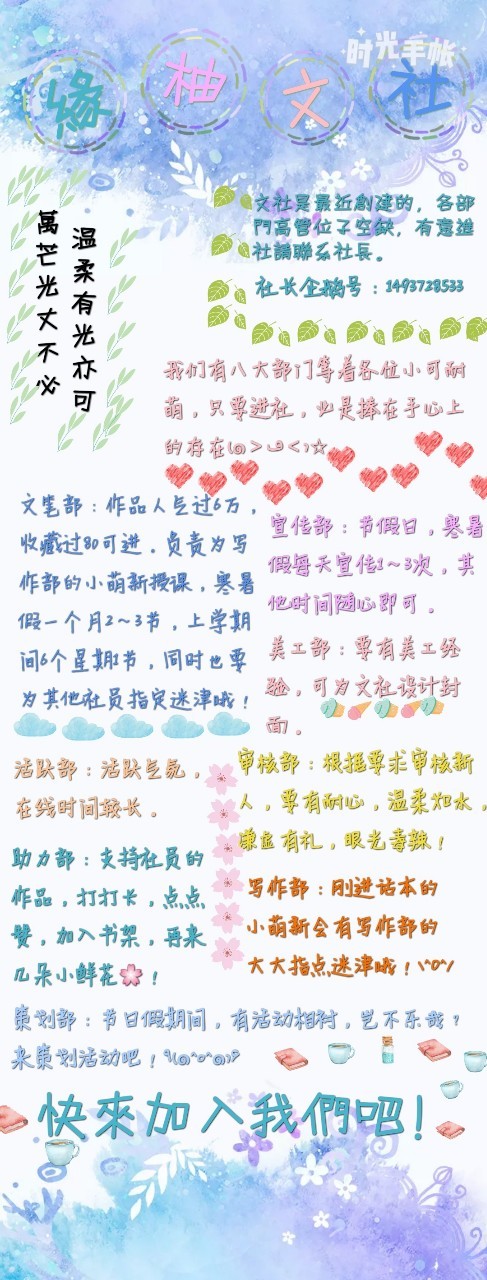 时光手帐
緣柚文社
萬芒光丈不必
溫柔有光亦可
文社是最近創建的，各部
門高管位子空缺，有意進
社請聯系社長。
社长企鹅号：1493728533
我们有八大部门等着各位小可耐
萌，只要进社，必是捧在手心上
的存在(๑>؂<๑)☆
文笔部：作品人气过6万，
收藏过80可进．负责为写
作部的小萌新授课，寒暑
假一个月2～3节，上学期
间6个星期1节，同时也要
为其他社员指定迷津哦！
宣传部：节假日，寒暑
假每天宣传1～3次，其
他时间随心即可．
美工部：要有美工经
验，可为文社设计封
面．
活跃部：活跃气氛，
在线时间较长．
审核部：根据要求审核新
人，要有耐心，温柔如水，
谦虚有礼，眼光毒辣！
助力部：支持社员的
作品，打打长，点点
赞，加入书架，再来
几朵小鲜花🌸！
写作部：刚进话本的
小萌新会有写作部的
大大指点迷津哦！\^o^/
策划部：节日假期间，有活动相衬，岂不乐哉？
来策划活动吧！٩(๑^o^๑)۶
快來加入我們吧！